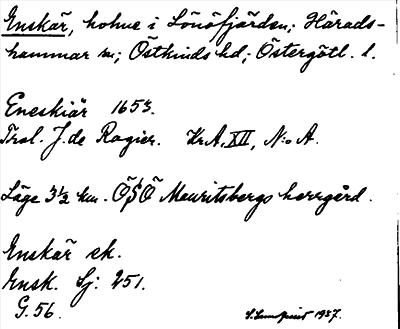 Enskär, holme i Lönöfjärden; Härads-
hammar sn; Östkinds hd; Östergötl. l.
Eneskiär 1653.
Trol. J. de Rogier. Kr.A, XII, N:o A.
Läge 3½ km. ÖSÖ Mauritsbergs herrgård.
Enskär ek.
Ensk. Sj: 251.
G. 56.
S. Lundqvist 1937.